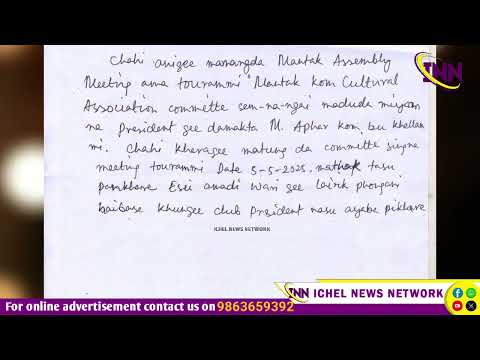 INN
Chahi anizee mamangda Mantak Assembly
Meeting ama tourammi Mantak kom Cultural
Association committe sem-na-ngai maduda miyam
na President gee damakta M. Aphar kom bu khallam
mi. Chahi kheragee matung da committe sugna
meeting tourammi Date 5-5-2025. mathak tasu
pamkhare Esei amadi Wari gee lairik phongani
haibase khungee club President nasu ayabe pikhare
ICHEL NEWS NETWORK
INN ICHEL NEWS NETWORK
For online advertisement contact us on 9863659392